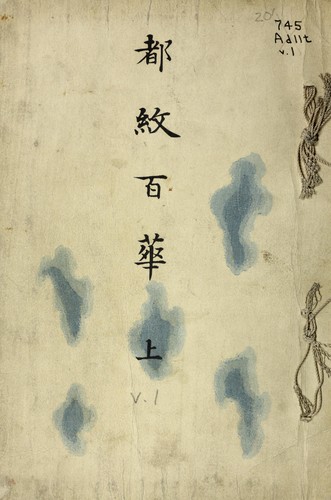 都紋百華上
20
745
Ad11t
v.1
v.1